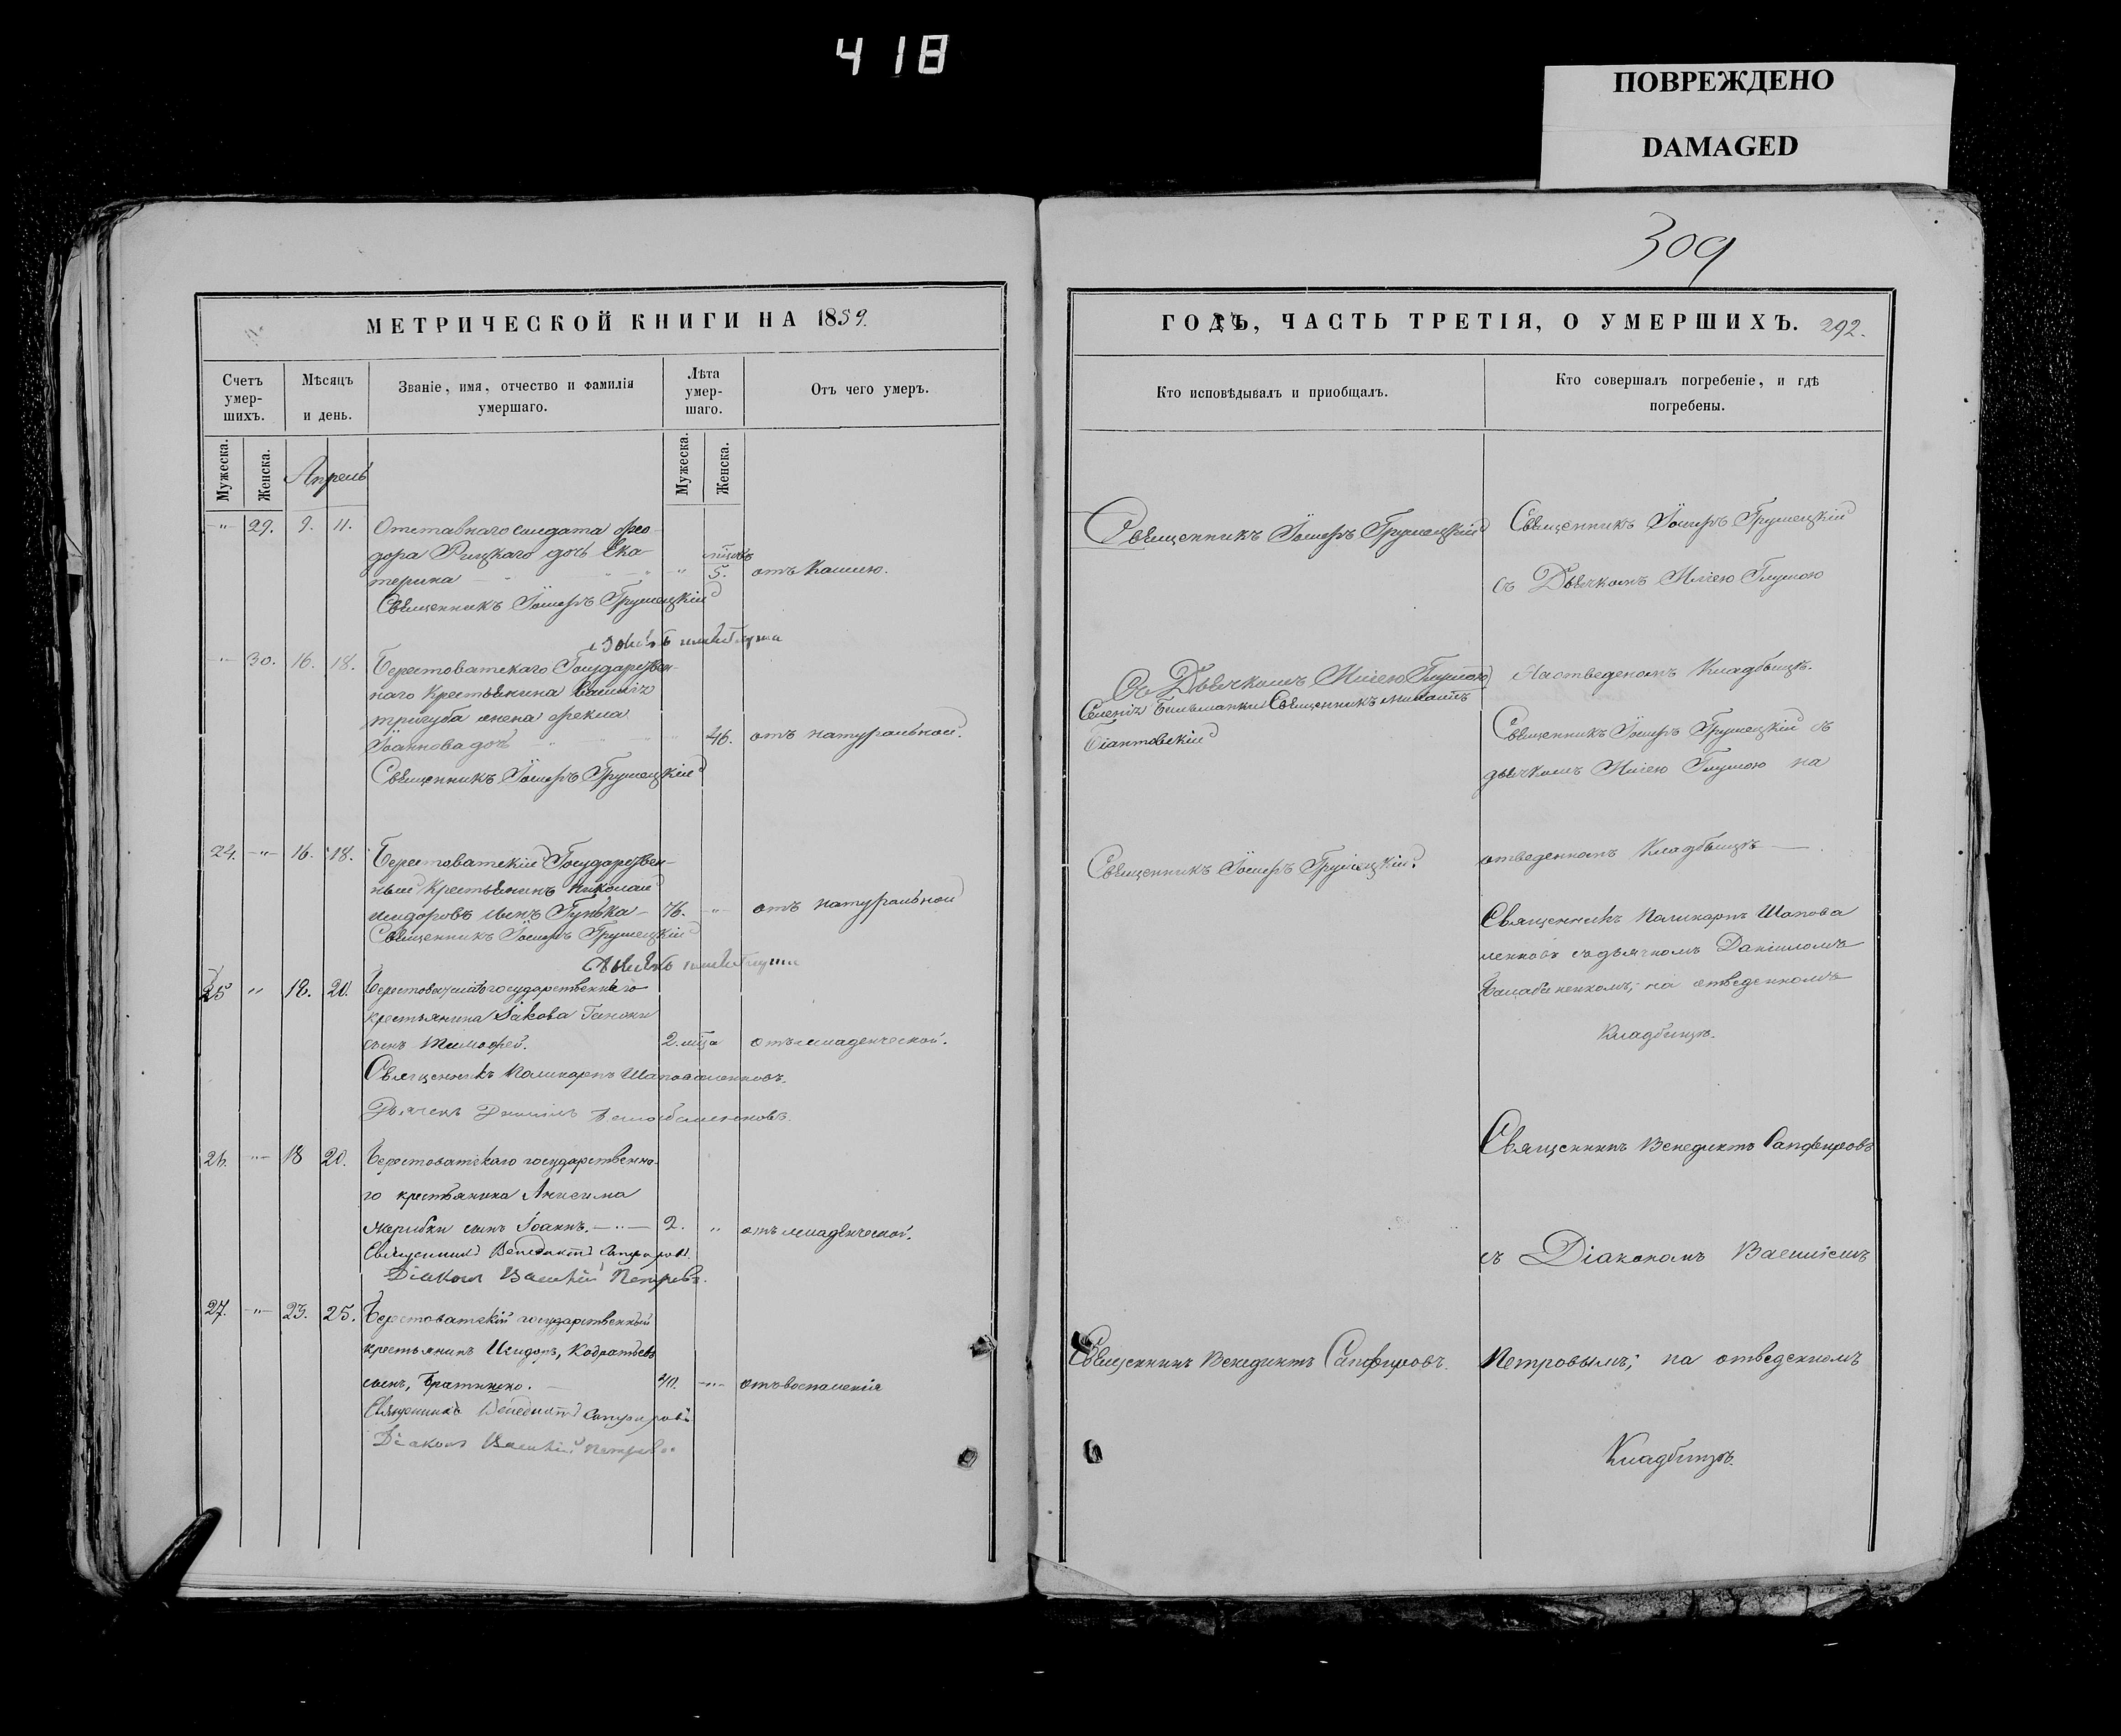 418
ПОВРЕЖДЕНО
DAMAGED
МЕТРИЧЕСКОЙ КНИГИ НА 1859.
Счетъ умер-шихъ.
Мѣсяцъ и день.
Званіе, имя, отчество и фамилія умершаго.
Лѣта умер-шаго.
Отъ чего умеръ.
Мужеска.
Женска.
Апрель
Мужеска.
Женска.
-"- 29. 9. 11. Отставнаго солдата Ѳео-
дора Рицкаго дочь Ека-
терина " 5. отъ Кашлю.
Священникъ Іосифъ Грушецкій
-"- 30. 16. 18. Берестоватскаго Государствен-
наго Крестьянина
тригуба жена Ѳекла
Іоаннова дочь 46. отъ натуральной.
Священникъ Іосифъ Грушецкій
24. -"- 16. 18. Берестоватскій Государствен-
ный Крестьянинъ Николай
сынъ Гунька 76. -"- отъ натуральной
Священникъ Іосифъ Грушецкій
25 " 18. 20. государственнаго
крестьянина Іакова
сынъ Тимофей. 2. отъ младенческой.
Священникъ Поликарпъ Шаповаленковъ.
Дьячекъ Даніилъ
26. -"- 18 20. Берестоватскаго государственна-
го крестьянина Анисима
сынъ Іоаннъ. -"- 2. " отъ младенческой.
Священникъ Венедиктъ Сапфировъ.
Діаконъ Василій Петровъ.
27. -"- 23. 25. Берестоватскій государственный
крестьянинъ Исидоръ, Кодратьевъ
сынъ, Братишко. 40. -"- отъ воспаленія
Священникъ Венедиктъ Сапфировъ
Діаконъ Василій Петровъ
309
ГОДЪ, ЧАСТЬ ТРЕТІЯ, О УМЕРШИХЪ. 292.
Кто исповѣдывалъ и приобщалъ.
Кто совершалъ погребеніе, и гдѣ погребены.
Священникъ Іосифъ Грушецкій
Съ Дьячкомъ Иліею Глушою
Священникъ
Священникъ Іосифъ Грушецкій.
Священникъ Венедиктъ Сапфировъ.
Священникъ Іосифъ Грушецкій
съ Дьячкомъ Иліею Глушою
На отведеномъ Кладбищѣ.
Священникъ Іосифъ Грушецкій съ
дьячкомъ Иліею Глушою на
отведенномъ Кладбищѣ
Священникъ Поликарпъ Шапова
ленковъ съ дьячкомъ Даніиломъ
на отведенномъ
Кладбищѣ.
Священникъ Венедиктъ Сапфировъ
съ Діакономъ Василіемъ
Петровымъ; на отведенномъ
Кладбищѣ.